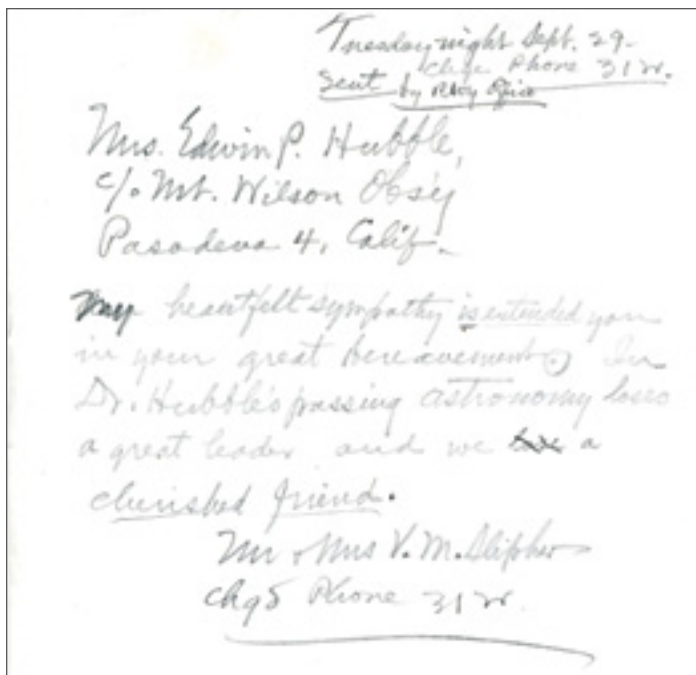 Tuesday night Sept. 29-
Chge Phone 312.
Sent by Office
Mrs. Edwin P. Hubble,
c/o Mt. Wilson Obs'y
Pasadena 4, Calif.
My heartfelt sympathy is extended you
in your great bereavement. In
Dr. Hubble's passing astronomy loses
a great leader and we a
cherished friend.
Mr & Mrs V. M. Slipher
Chgs Phone 312.